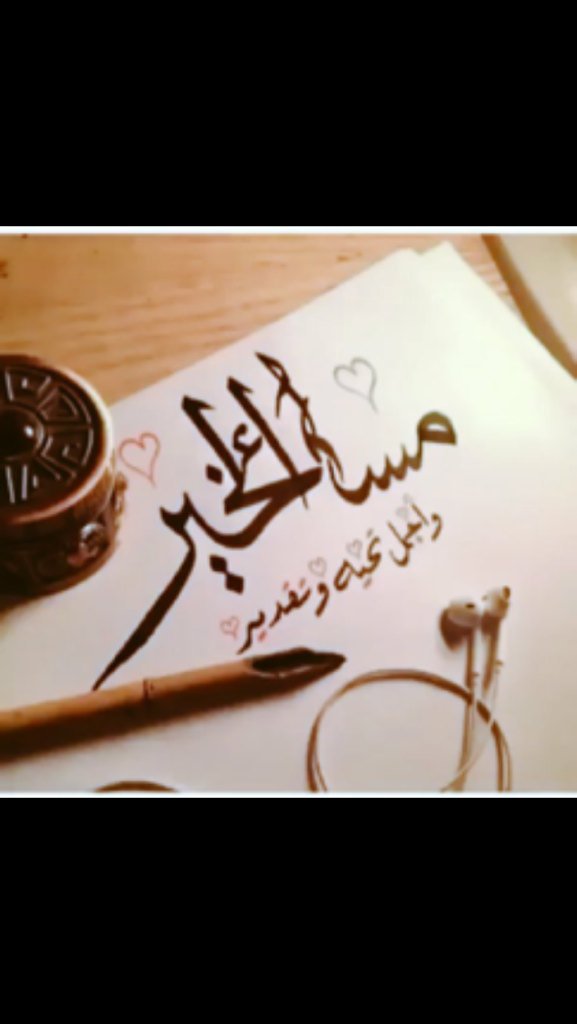 مساء الخير
واجمل تحيه وتقدير